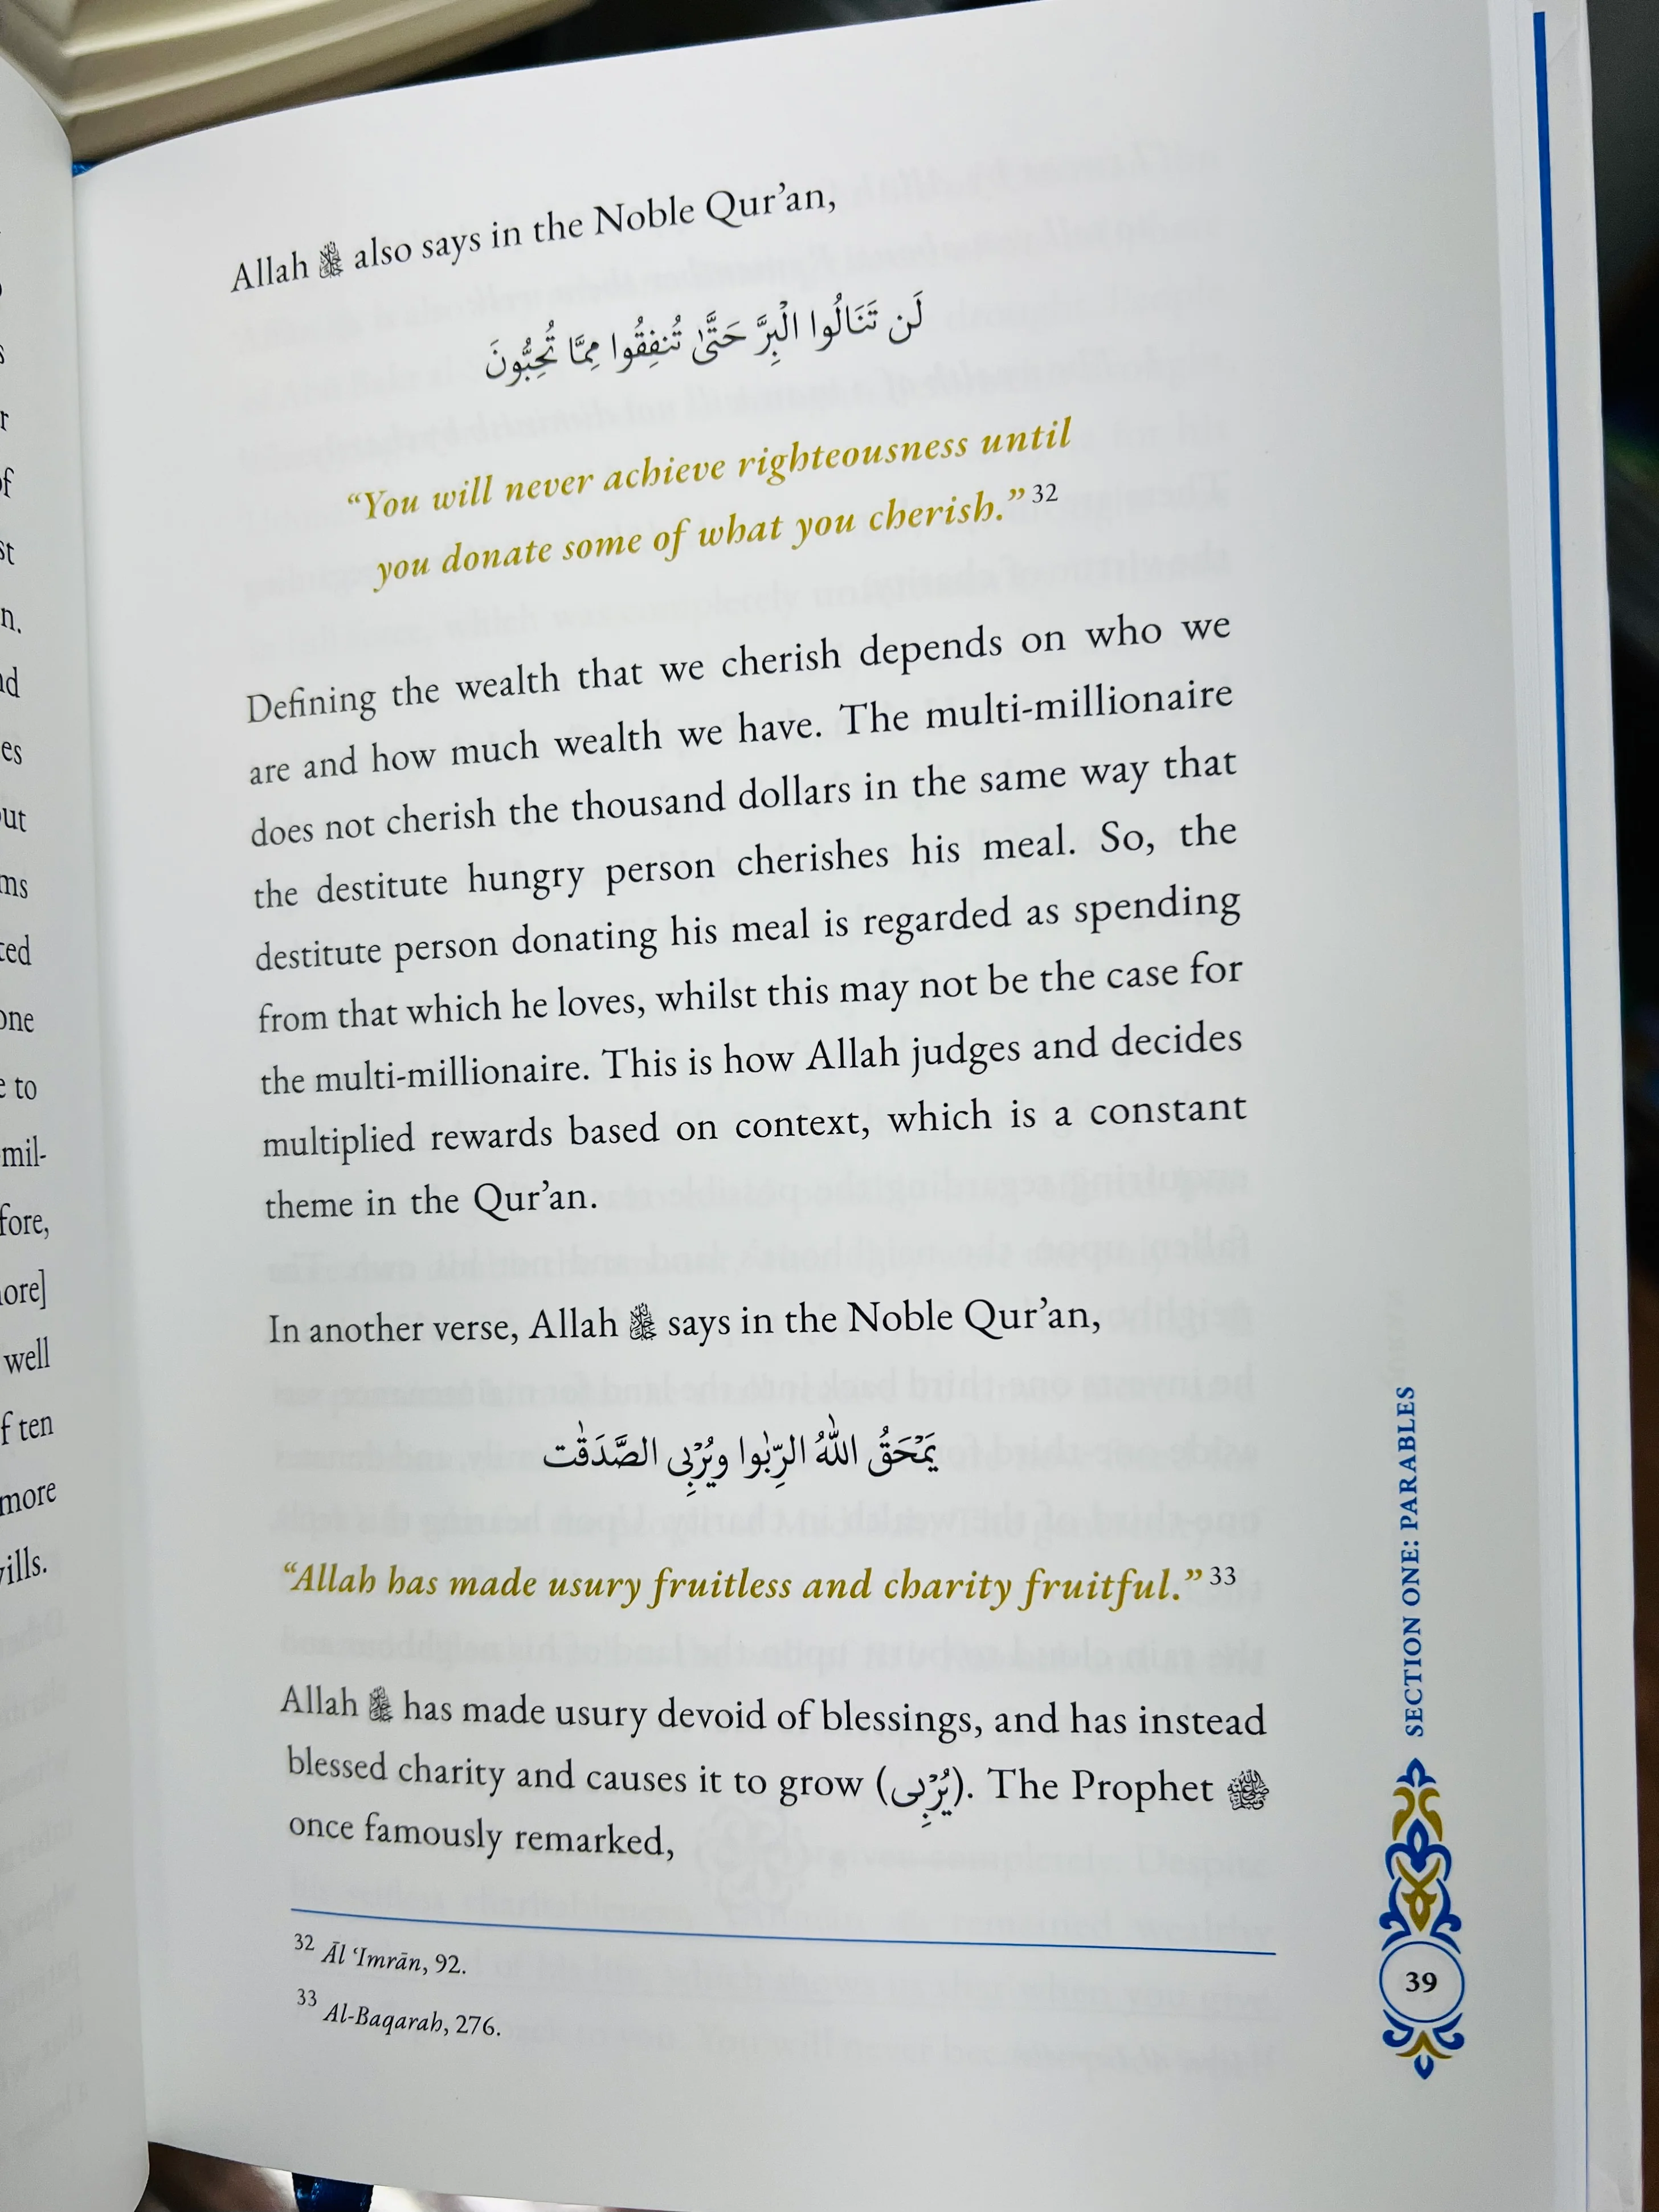 Allah ﷻ also says in the Noble Qur’an,
لَن تَنَالُوا الْبِرَّ حَتَّىٰ تُنفِقُوا مِمَّا تُحِبُّونَ
“You will never achieve righteousness until
you donate some of what you cherish.” 32
Defining the wealth that we cherish depends on who we
are and how much wealth we have. The multi-millionaire
does not cherish the thousand dollars in the same way that
the destitute hungry person cherishes his meal. So, the
destitute person donating his meal is regarded as spending
from that which he loves, whilst this may not be the case for
the multi-millionaire. This is how Allah judges and decides
multiplied rewards based on context, which is a constant
theme in the Qur’an.
In another verse, Allah ﷻ says in the Noble Qur’an,
يَمْحَقُ اللَّهُ الرِّبَٰوا وَيُرْبِى الصَّدَقَٰت
“Allah has made usury fruitless and charity fruitful.” 33
Allah ﷻ has made usury devoid of blessings, and has instead
blessed charity and causes it to grow (يُرْبِى). The Prophet ﷺ
once famously remarked,
32 Āl ‘Imrān, 92.
33 Al-Baqarah, 276.
SECTION ONE: PARABLES
39
of
n.
es
ut
ms
ted
one
to
mil-
fore,
ore]
well
f ten
more